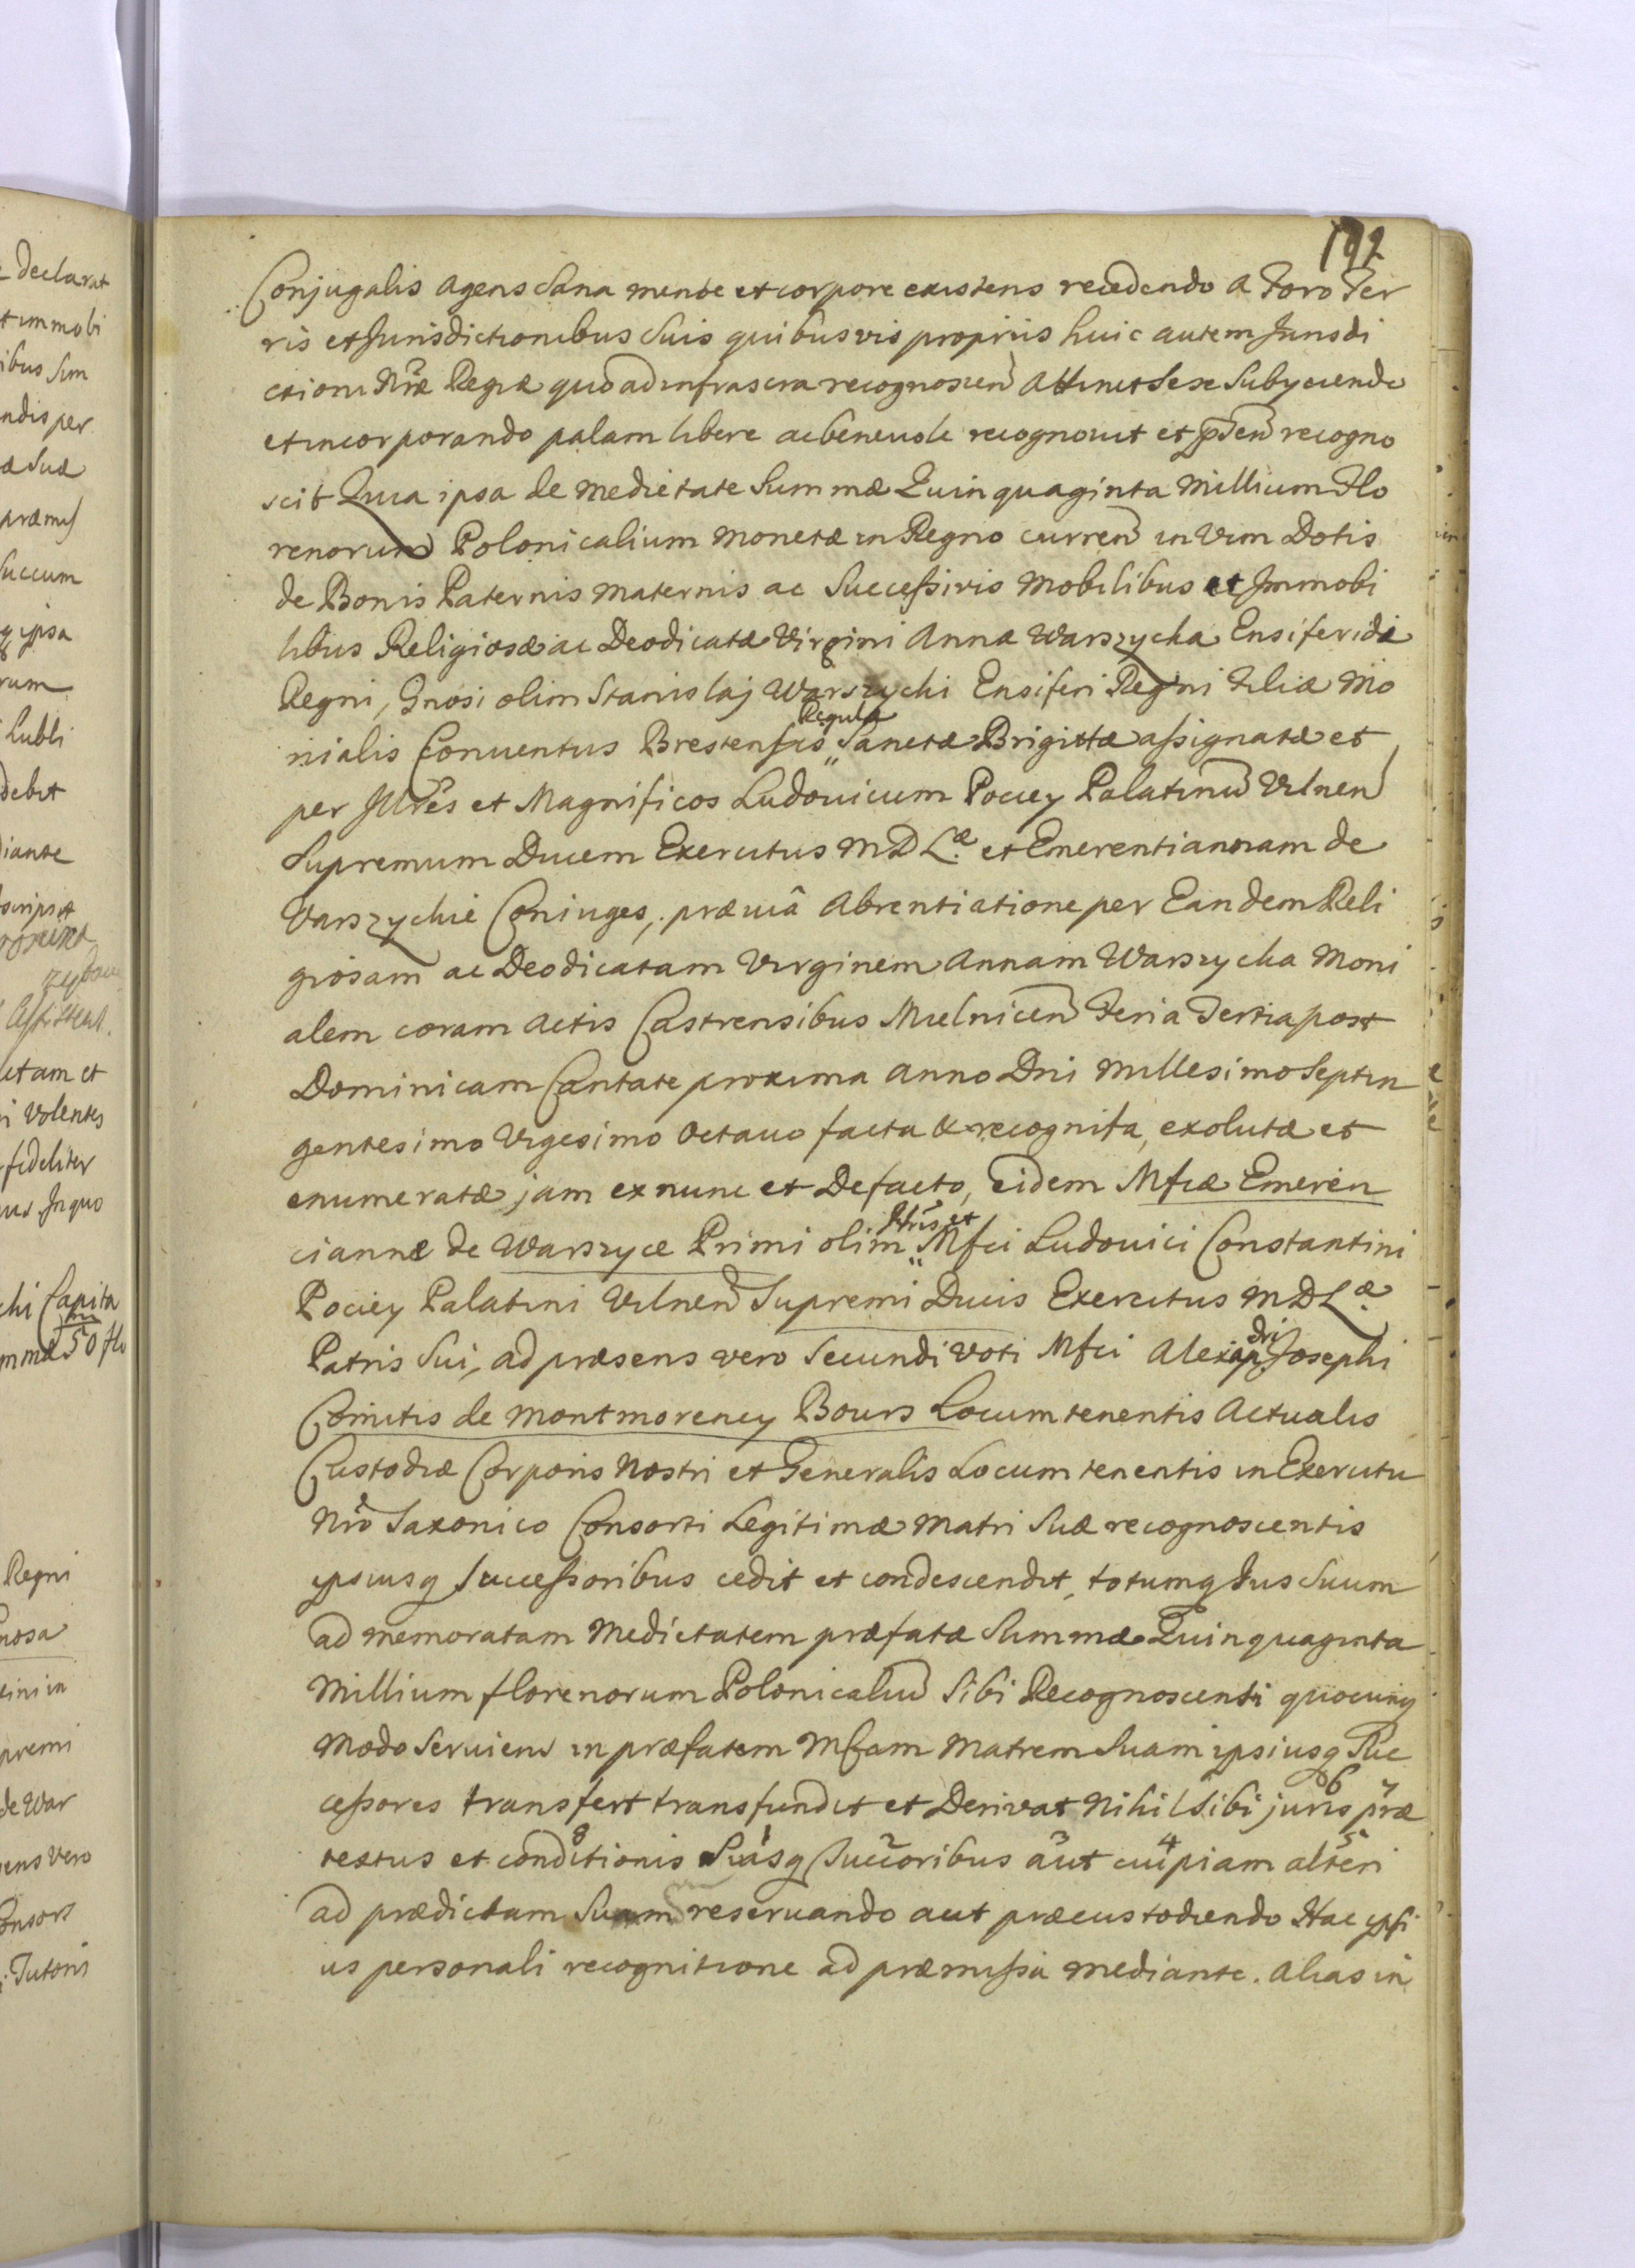 192
Conjugalis agens Sana mente et corpore existens recedendo a Foro Ter
ris et Jurisdictionibus Suis quibusvis propriis huic autem Jurisdi
ctioni Nrae Regiae quo ad infrascra recognoscen attinet Sese Subyciendo
et incorporando palam libere ac beneuole recognouit et pnsen recogno
scit Quia ipsa de Medietate Summae Quinquaginta Millium Flo
renorum Polonicalium Monetae in Regno curren in Vim Dotis
de Bonis Paternis Maternis ac Successivis Mobilibus et Immobi
libus Religiosae ac Deodicatae Virgini Annae Warszycka Ensiferidae
Regni, Gnosi olim Stanislaj Warszychi Ensiferi Regni Filiae Mo
Regulae
nialis Conuentus Brestensis „ Sanctae Brigittae assignatae et
per Illres et Magnificos Ludouicum Pociey Palatinu Vilnen
Supremum Ducem Exercitus M D L.ae et Emerentiannam de
Warszychie Coniuges, praeuiâ Abrentiatione per Eandem Reli
giosam ac Deodicatam Virginem Annam Warszycka Moni
alem coram Actis Castrensibus Mielnicen Feria Tertia post
Dominicam Cantate proxima Anno Dni Millesimo Septin
gentesimo Vigesimo Octauo facta & recognita, exolutae et
enumeratae jam ex nunc et Defacto, Eidem Mfcae Emeren
Illris et
ciannae de Warszyce Primi olim „ Mfci Ludouici Constantini
Pociey Palatini Vilnen Supremi Ducis Exercitus M D L.ae
Patris Sui, ad praesens vero Secundi Voti Mfci Alexandri Josephi
Comitis de Montmorency Bours Locumtenentis Actualis
Custodiae Corporis Nostri et Generalis Locumtenentis in Exercitu
Nro Saxonico Consorti Legitimae Matri Suae recognoscentis
ipsiusq Successoribus cedit et condescendit, totumq Jus Suum
ad memoratam Medietatem praefatae Summae Quinquaginta
Millium florenorum Polonicaliu Sibi Recognoscenti quocunq
Modo Seruiens in praefatem Mfcam Matrem Suam ipsiusq Suc
6 7
cessores transfert transfundit et Derivat Nihil Sibi juris prae
8 1 2 3 4 5
textus et conditionis Suisq Succoribus aut cuipiam alteri
ad praedictam Suam reseruando aut praecustodiendo Hac ipsi
us personali recognitione ad praemissa mediante. Alias in